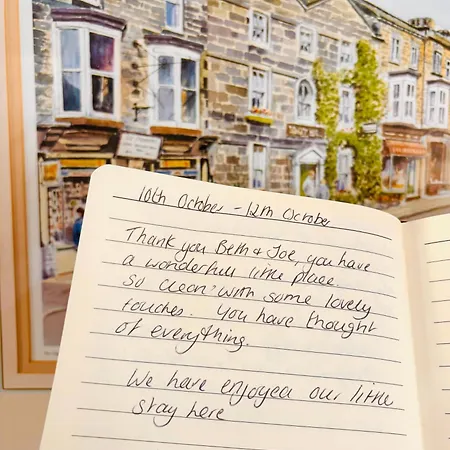 10th October - 12th October
Thank you Beth & Joe, you have
a wonderfull little place.
So clean with some lovely
touches. You have thought
of everything.
We have enjoyed our little
stay here